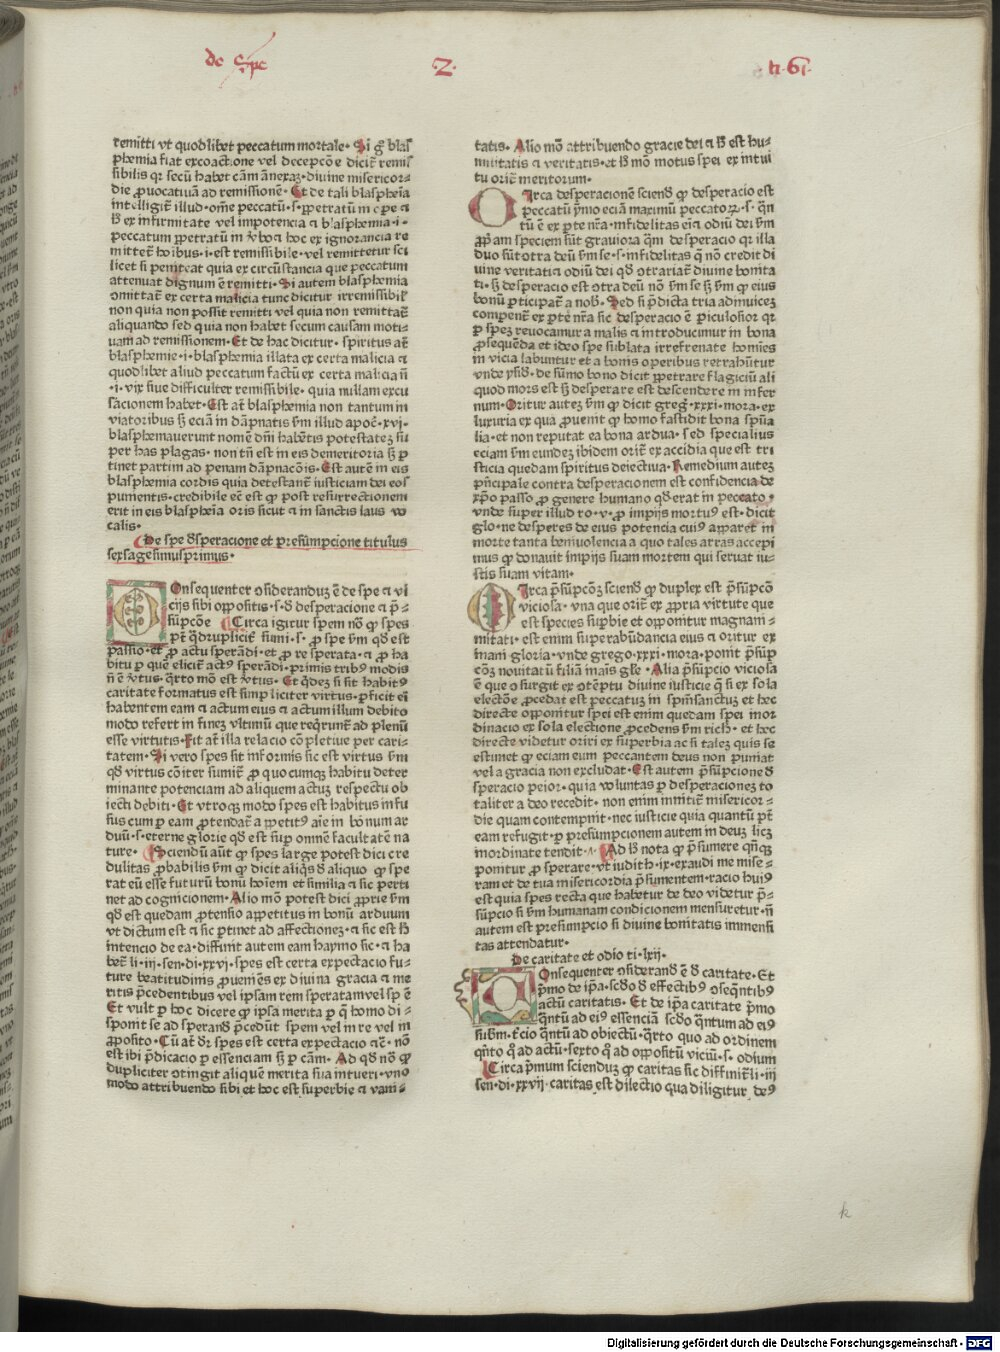 de spe
.2.
ti. 61.
remitti vt quodlibet peccatum mortale. Si g̊ blas
phemia fiat ex coactione vel decepcōe dicit̄ remis
sibilis qr secū habet cām ānexaꝫ. diuine misericor-
die ꝓuocatiuā ad remissionē. Et de tali blasphēia
intelligit̄ illud. om̄e peccatū. s. ꝑpetratū
peccatum ꝑpetratū
mittet̄ hoībus. i. est remissibile. vel remittetur sci
licet si peniteat quia ex circūstancia que peccatum
attenuat dignum ē remitti. Si autem blasphemia
cōmittat̄ ex certa malicia tunc dicitur irremissibilꝭ
non quia non possit remitti vel quia non remittat̄
aliquando sed quia non habet secum causam moti-
uam ad remissionem. Et de hac dicitur. spiritus at̄
blasphemie. i. blasphemia illata ex certa malicia ⁊
quodlibet aliud peccatum factū ex certa malicia n̄
.i. vix siue difficulter remissibile. quia nullam excu
sacionem habet. Est at̄ blasphemia non tantum in
viatoribus sꝫ eciā in dāpnatis s̄m illud apoc̄. xvi.
blasphemauerunt nomē dn̄i habētis potestateꝫ su
per has plagas. non tn̄ est in eis demeritoria sꝫ ꝑ
tinet partim ad penam dāpnacōis. Est autē in eis
blasphemia cordis quia detestant̄ iusticiam dei eos
punientis. credibile ec̄ est ꝙ post resurrectionem
erit in eis blasphēia oris sicut ⁊ in sanctis laus vo
calis.
De spe desperacione et presūmpcione titulus
sexsagesimusprimus.
Onsequenter ꝯsideranduꝫ ē de spe ⁊ vi
cijs sibi oppositis. s. d̄ desperacione ⁊ p̄-
sūpcōe Circa igitur spem nō ꝙ spes
pt̄ q̄druplicit̄ sumi. s. ꝓ spe s̄m qd̄ est
passio. et ꝓ actu sperādi. et ꝓ re sperata. ⁊ ꝓ ha
bitu ꝑ quē elicit̄ actꝰ sperādi. primis tribꝰ modis
n̄ ē v̄tus. q̄rto mō est v̄tus. Et q̄dez si sit habitꝰ
caritate formatus est simpliciter virtus. ꝑficit em̄
habentem eam ⁊ actum eius ⁊ actum illum debito
modo refert in fineꝫ vltimū que reqrunt̄ ad plenū
esse virtutis. Fit at̄ illa relacio cōpletiue per cari-
tatem. Si vero spes sit informis sic est virtus s̄m
qd̄ virtus cōiter sumit̄ ꝓ quocumqꝫ habitu deter
minante potenciam ad aliquem actuꝫ respectu ob
iecti debiti. Et vtroqꝫ modo spes est habitus infu
sus cum ꝑ eam ꝓtendat̄ appetitꝰ aīe in bonum ar
duū. s. eterne glorie qd̄ est sup̄ omnē facultatē na
ture. Sciendū aūt ꝙ spes large potest dici cre
dulitas ꝓbabilis s̄m ꝙ dicit aliq̄s d̄ aliquo ꝙ spe
rat eū esse futurū bonū hoīem et similia ⁊ sic perti
net ad cognicionem. Alio mō potest dici proprie s̄m
qd̄ est quedam ꝓtensio appetitus in bonū arduum
vt dictum est ⁊ sic ꝑtinet ad affectioneꝫ. ⁊ sic est hꝫ
intencio de ea. diffinit autem eam haymo sic. ⁊ ha
bet̄ li. iij. sen. di. xxvi. spes est certa expectacio fu-
ture beatitudinis ꝓueniēs ex diuina gracia ⁊ me
ritis p̄cedentibus vel ipsam rem speratam vel spē
Et vult ꝑ hoc dicere ꝙ ipsa merita ꝑ q̄ homo di-
sponit se ad sperand̄ p̄cedūt spem vel in re vel in
ꝓposito. Cū at̄ d̄r spes est certa expectacio ⁊c̄. nō
est ibi p̄dicacio ꝑ essenciam sꝫ ꝑ cām. Ad qd̄ nō ꝙ
dupliciter ꝯtingit aliquē merita sua intueri. vno
modo attribuendo sibi et hoc est superbie ⁊ vani-
tatis. Alio mō attribuendo gracie dei ⁊ hꝫ est hu-
militatis ⁊ veritatis. et hꝫ mō motus spei ex intui
tu orit̄ meritorum.
Irca desperacionē sciend̄ ꝙ desperacio est
peccatū p̄mo eciā maximū peccatoꝝ. s. q̄n
tū ē ex ꝑte nr̄a. infidelitas em̄ ⁊ odiū dei s̄m
ꝓp̄am speciem sūt grauiora q̄m desperacio qr illa
duo sūt ꝯtra deū s̄m se. s. infidelitas q̄ nō credit di
uine veritati ⁊ odiū dei qd̄ ꝯtrariat̄ diuine bonita
ti. sꝫ desperacio est ꝯtra deū nō s̄m se sꝫ s̄m ꝙ eius
bonū ꝑticipat̄ a nob̄. Sed si p̄dicta tria adinuiceꝫ
compent̄ ex ꝑte nr̄a sic desperacio ē ꝑiculosior qr
ꝑ speꝫ reuocamur a malis ⁊ introducimur in bona
ꝓsequēda et ideo spe sublata irrefrenate homīes
in vicia labuntur et a bonis operibus retrahūtur
vnde ysid̄. de sūmo bono dicit ꝑpetrare flagiciū ali
quod mors est sꝫ desperare est descendere in infer
num. Oritur auteꝫ s̄m ꝙ dicit greḡ. xxxi. mora. ex
luxuria ex qua ꝓuenit ꝙ homo fastidit bona sp̄ūa
lia. et non reputat ea bona ardua. sed specialius
eciam s̄m eundeꝫ ibidem orit̄ ex accidia que est tri
sticia quedam spiritus deiectiua. Remedium auteꝫ
pn̄cipale contra desperacionem est confidencia de
xp̄o passo ꝓ genere humano qd̄ erat in peccato.
vnde super illud ro. v. ꝓ impijs mortuꝰ est. dicit
glo. ne desperes de eius potencia cuiꝰ apparet in
morte tanta beniuolencia a quo tales arras accepi
mus ꝙ donauit impijs suam mortem qui seruat iu-
stis suam vitam.
Irca p̄sūpcōꝫ sciend̄ ꝙ duplex est p̄sūpcō
viciosa. vna que orit̄ ex ꝓpria virtute que
est species supbie et opponitur magnani-
mitati. est enim superabūdancia eius ⁊ oritur ex
inani gloria. vnde grego. xxxi. mora. ponit p̄sūp
cōꝫ nouitatū filiā inaīs gl̄e. Alia p̄sūpcio viciosa
ē que ꝯsurgit ex ꝯtēptu diuine iusticie q̄ si ex sola
electōe ꝓcedat est peccatuꝫ in spm̄sanctuꝫ et hec
directe opponitur spei est enim quedam spei inor
dinacio ex sola electione ꝓcedens s̄m rich̄. et hec
directe videtur oriri ex superbia ac si taleꝫ quis se
estimet ꝙ eciam eum peccantem deus non puniat
vel a gracia non excludat. Est autem p̄sūpcione d̄
speracio peior. quia voluntas ꝑ desperacioneꝫ to
taliter a deo recedit. non enim innitit̄ misericor-
die quam contempnit. nec iusticie quia quantū pt̄
eam refugit. ꝑ presumpcionem autem in deuꝫ licꝫ
inordinate tendit. Ad hꝫ nota ꝙ p̄sumere qn̄qꝫ
ponitur ꝓ sperare. vt iudith. ix. exaudi me mise-
ram et de tua misericordia p̄sumentem. racio huiꝰ
est quia spes recta que habetur de deo videtur p̄-
sūpcio si s̄m humanam condicionem mensuretur. n̄
autem est presumpcio si diuine bonitatis immensi
tas attendatur.
De caritate et odio ti. lxij.
Onsequenter ꝯsiderand̄ ē d̄ caritate. Et
p̄mo de ip̄a. scd̄o d̄ effectibꝰ ꝯseqn̄tibꝰ
actū caritatis. Et de ip̄a caritate p̄mo
q̄ntū ad eiꝰ essenciā scd̄o q̄ntum ad eiꝰ
subm̄. t̄cio q̄ntū ad obiectū. q̄rto quo ad ordinem
qn̄to q̊ ad actū. sexto q̊ ad oppositū viciū. s. odium
Circa p̄mum scienduꝫ ꝙ caritas sic diffinit̄ li. iij
sen. di. xxvij. caritas est dilectio qua diligitur deꝰ
k
Digitalisierung gefördert durch die Deutsche Forschungsgemeinschaft - DFG